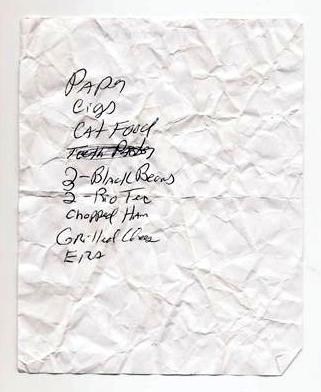 Paper
Cigs
Cat Food
Tooth Paste
2-Black Beans
2-Rio Tex
Chopped Ham
Grilled Chees